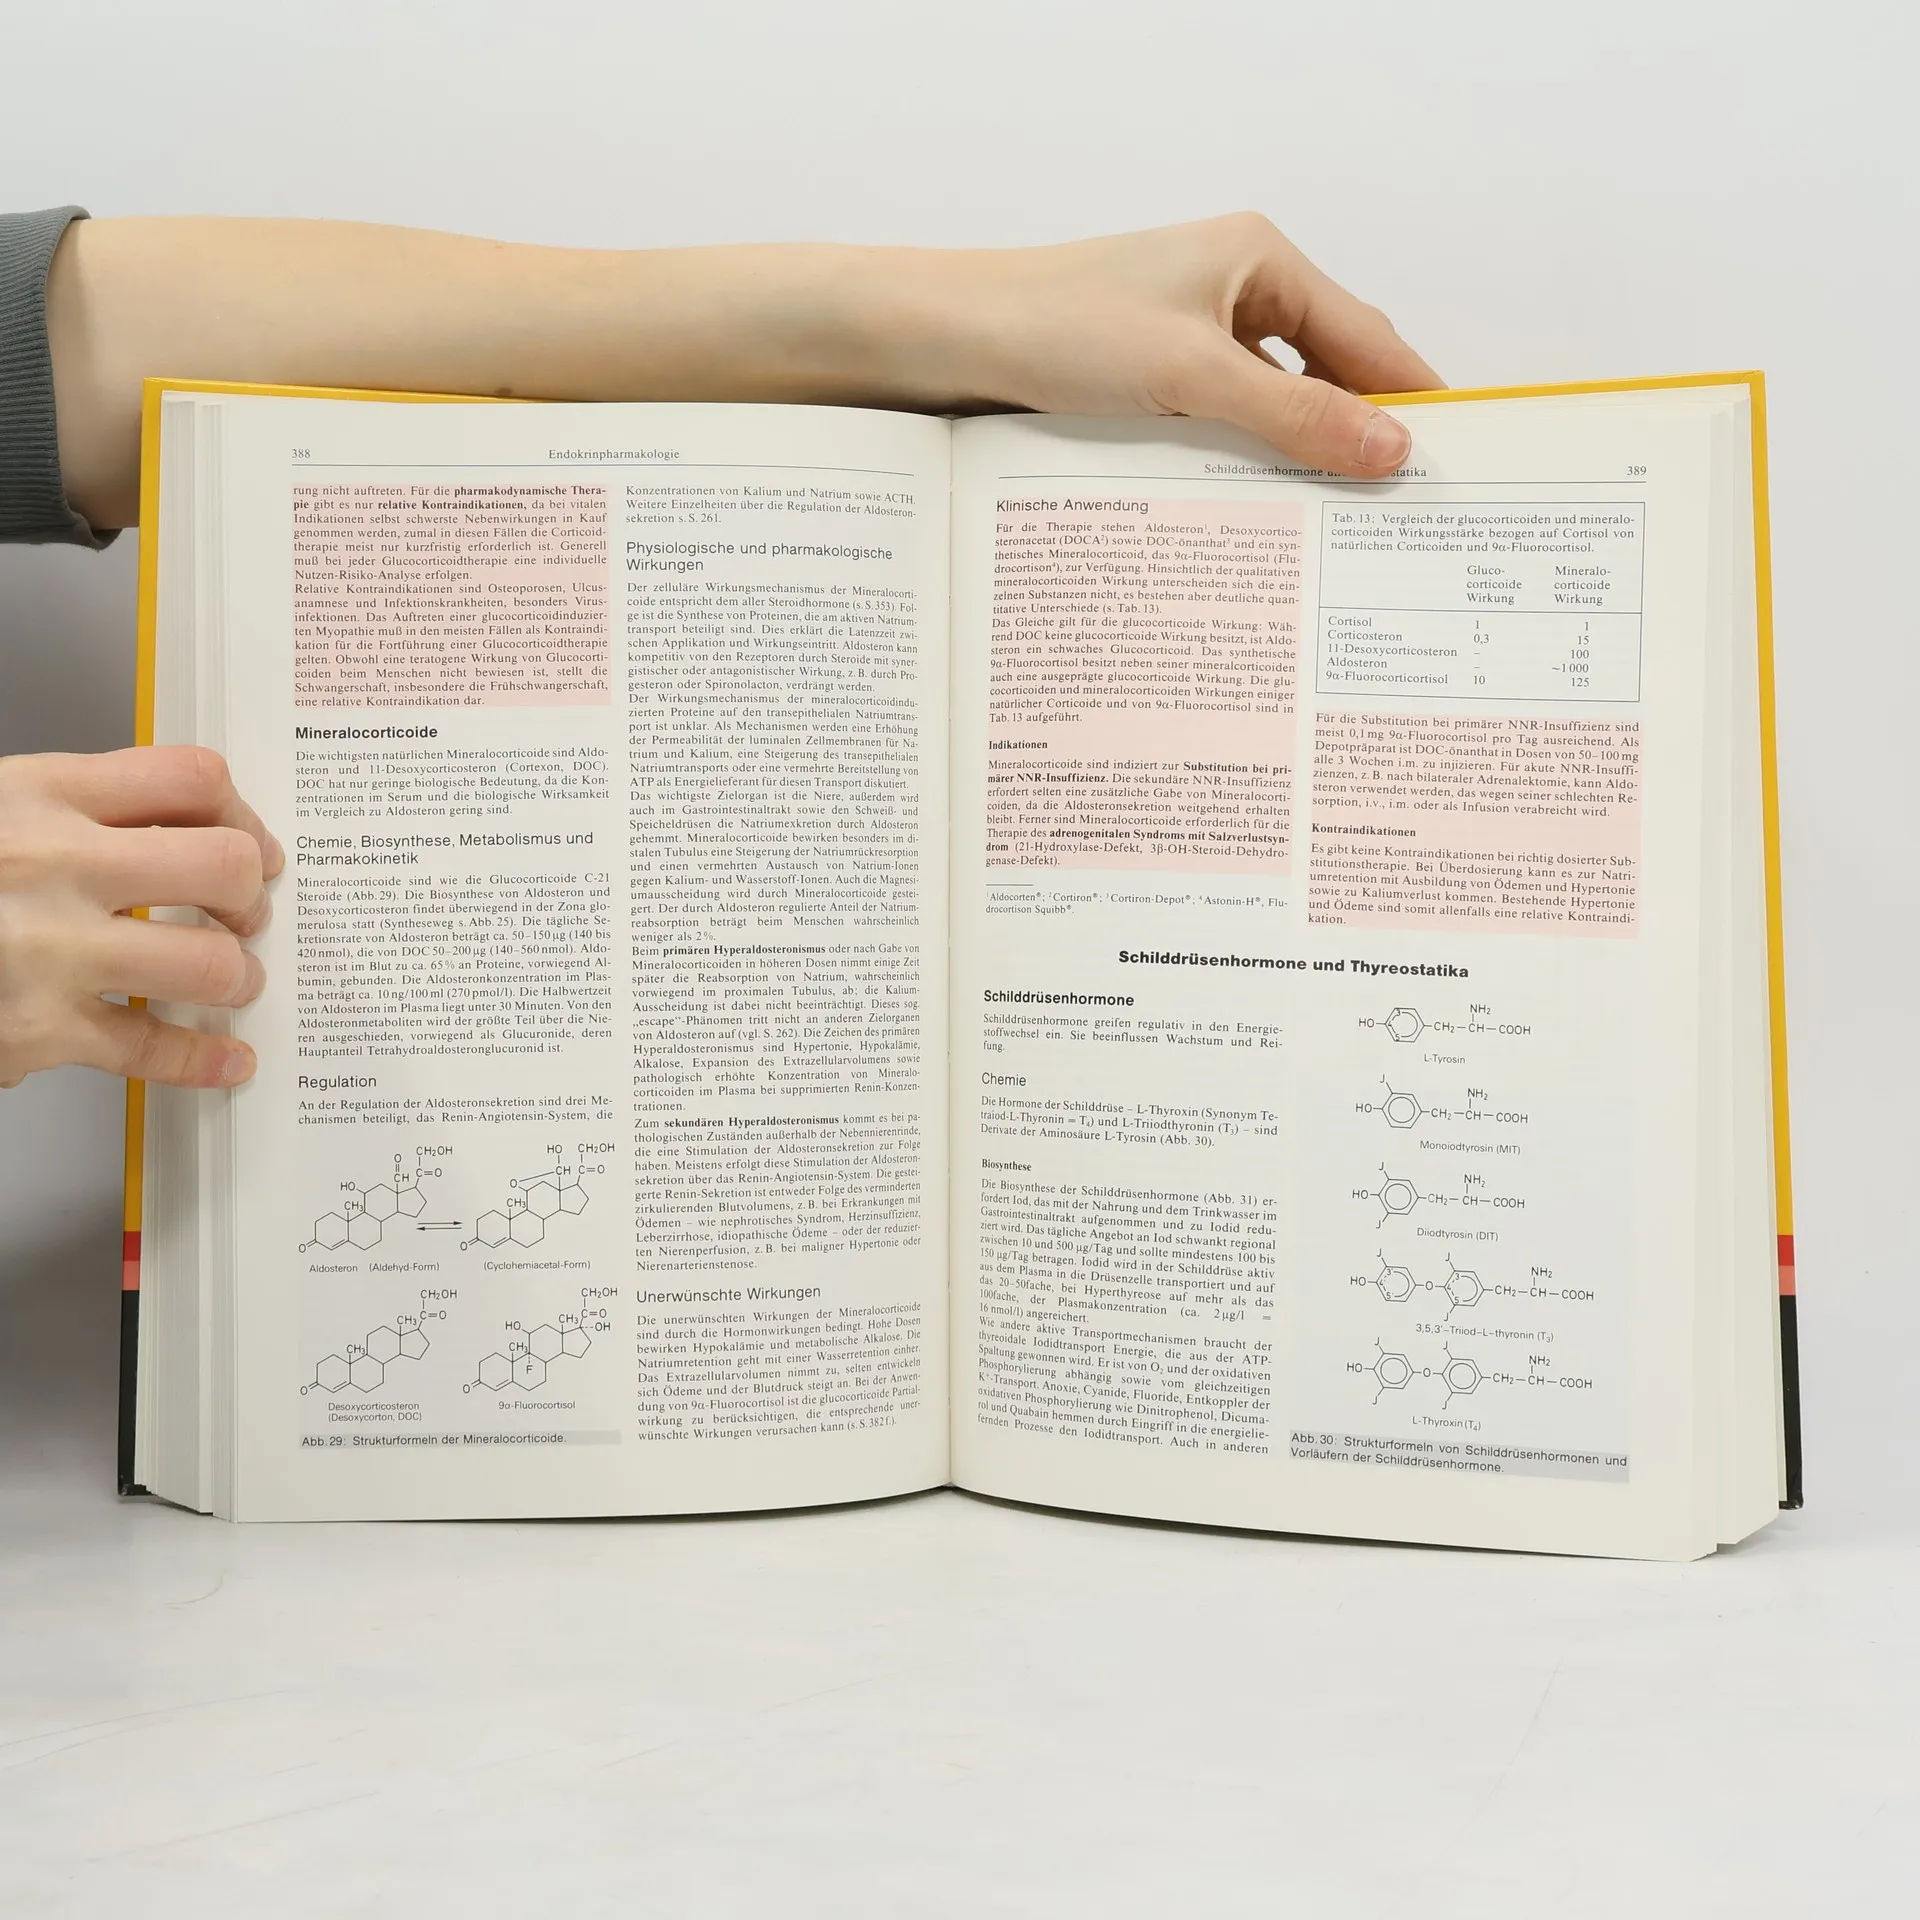 388
Endokrinpharmakologie
rung nicht auftreten. Für die pharmakodynamische Thera-
pie gibt es nur relative Kontraindikationen, da bei vitalen
Indikationen selbst schwerste Nebenwirkungen in Kauf
genommen werden, zumal in diesen Fällen die Corticoid-
therapie meist nur kurzfristig erforderlich ist. Generell
muß bei jeder Glucocorticoidtherapie eine individuelle
Nutzen-Risiko-Analyse erfolgen.
Relative Kontraindikationen sind Osteoporosen, Ulcus-
anamnese und Infektionskrankheiten, besonders Virus-
infektionen. Das Auftreten einer glucocorticoidinduzier-
ten Myopathie muß in den meisten Fällen als Kontraindi-
kation für die Fortführung einer Glucocorticoidtherapie
gelten. Obwohl eine teratogene Wirkung von Glucocorti-
coiden beim Menschen nicht bewiesen ist, stellt die
Schwangerschaft, insbesondere die Frühschwangerschaft,
eine relative Kontraindikation dar.
Mineralocorticoide
Die wichtigsten natürlichen Mineralocorticoide sind Aldo-
steron und 11-Desoxycorticosteron (Cortexon, DOC).
DOC hat nur geringe biologische Bedeutung, da die Kon-
zentrationen im Serum und die biologische Wirksamkeit
im Vergleich zu Aldosteron gering sind.
Chemie, Biosynthese, Metabolismus und
Pharmakokinetik
Mineralocorticoide sind wie die Glucocorticoide C-21
Steroide (Abb. 29). Die Biosynthese von Aldosteron und
Desoxycorticosteron findet überwiegend in der Zona glo-
merulosa statt (Syntheseweg s. Abb. 25). Die tägliche Se-
kretionsrate von Aldosteron beträgt ca. 50–150 µg (140 bis
420 nmol), die von DOC 50–200 µg (140–560 nmol). Aldo-
steron ist im Blut zu ca. 65% an Proteine, vorwiegend Al-
bumin, gebunden. Die Aldosteronkonzentration im Plas-
ma beträgt ca. 10 ng/100 ml (270 pmol/l). Die Halbwertzeit
von Aldosteron im Plasma liegt unter 30 Minuten. Von den
Aldosteronmetaboliten wird der größte Teil über die Nie-
ren ausgeschieden, vorwiegend als Glucuronide, deren
Hauptanteil Tetrahydroaldosteronglucuronid ist.
Regulation
An der Regulation der Aldosteronsekretion sind drei Me-
chanismen beteiligt, das Renin-Angiotensin-System, die
CH2OH
O
C=O
CH
HO
CH3
O
Aldosteron (Aldehyd-Form)
HO CH2OH
CH C=O
O
CH3
O
(Cyclohemiacetal-Form)
CH2OH
C=O
CH3
CH3
O
Desoxycorticosteron
(Desoxycorton, DOC)
CH2OH
C=O
CH3 --OH
HO
CH3
F
O
9α-Fluorocortisol
Abb. 29: Strukturformeln der Mineralocorticoide.
Konzentrationen von Kalium und Natrium sowie ACTH.
Weitere Einzelheiten über die Regulation der Aldosteron-
sekretion s. S. 261.
Physiologische und pharmakologische
Wirkungen
Der zelluläre Wirkungsmechanismus der Mineralocorti-
coide entspricht dem aller Steroidhormone (s. S. 353). Fol-
ge ist die Synthese von Proteinen, die am aktiven Natrium-
transport beteiligt sind. Dies erklärt die Latenzzeit zwi-
schen Applikation und Wirkungseintritt. Aldosteron kann
kompetitiv von den Rezeptoren durch Steroide mit syner-
gistischer oder antagonistischer Wirkung, z. B. durch Pro-
gesteron oder Spironolacton, verdrängt werden.
Der Wirkungsmechanismus der mineralocorticoidindu-
zierten Proteine auf den transepithelialen Natriumtrans-
port ist unklar. Als Mechanismen werden eine Erhöhung
der Permeabilität der luminalen Zellmembranen für Na-
trium und Kalium, eine Steigerung des transepithelialen
Natriumtransports oder eine vermehrte Bereitstellung von
ATP als Energielieferant für diesen Transport diskutiert.
Das wichtigste Zielorgan ist die Niere, außerdem wird
auch im Gastrointestinaltrakt sowie den Schweiß- und
Speicheldrüsen die Natriumexkretion durch Aldosteron
gehemmt. Mineralocorticoide bewirken besonders im di-
stalen Tubulus eine Steigerung der Natriumrückresorption
und einen vermehrten Austausch von Natrium-Ionen
gegen Kalium- und Wasserstoff-Ionen. Auch die Magnesi-
umausscheidung wird durch Mineralocorticoide gestei-
gert. Der durch Aldosteron regulierte Anteil der Natrium-
reabsorption beträgt beim Menschen wahrscheinlich
weniger als 2%.
Beim primären Hyperaldosteronismus oder nach Gabe von
Mineralocorticoiden in höheren Dosen nimmt einige Zeit
später die Reabsorption von Natrium, wahrscheinlich
vorwiegend im proximalen Tubulus, ab; die Kalium-
Ausscheidung ist dabei nicht beeinträchtigt. Dieses sog.
„escape“-Phänomen tritt nicht an anderen Zielorganen
von Aldosteron auf (vgl. S. 262). Die Zeichen des primären
Hyperaldosteronismus sind Hypertonie, Hypokaliämie,
Alkalose, Expansion des Extrazellularvolumens sowie
pathologisch erhöhte Konzentration von Mineralo-
corticoiden im Plasma bei supprimierten Renin-Konzen-
trationen.
Zum sekundären Hyperaldosteronismus kommt es bei pa-
thologischen Zuständen außerhalb der Nebennierenrinde,
die eine Stimulation der Aldosteronsekretion zur Folge
haben. Meistens erfolgt diese Stimulation der Aldosteron-
sekretion über das Renin-Angiotensin-System. Die gestei-
gerte Renin-Sekretion ist entweder Folge des verminderten
zirkulierenden Blutvolumens, z. B. bei Erkrankungen mit
Ödemen – wie nephrotisches Syndrom, Herzinsuffizienz,
Leberzirrhose, idiopathische Ödeme – oder der reduzier-
ten Nierenperfusion, z. B. bei maligner Hypertonie oder
Nierenarterienstenose.
Unerwünschte Wirkungen
Die unerwünschten Wirkungen der Mineralocorticoide
sind durch die Hormonwirkungen bedingt. Hohe Dosen
bewirken Hypokaliämie und metabolische Alkalose. Die
Natriumretention geht mit einer Wasserretention einher.
Das Extrazellularvolumen nimmt zu, selten entwickeln
sich Ödeme und der Blutdruck steigt an. Bei der Anwen-
dung von 9α-Fluorocortisol ist die glucocorticoide Partial-
wirkung zu berücksichtigen, die entsprechende uner-
wünschte Wirkungen verursachen kann (s. S. 382 f.).
Schilddrüsenhormone statika
389
Klinische Anwendung
Für die Therapie stehen Aldosteron¹, Desoxycortico-
steronacetat (DOCA²) sowie DOC-önanthat³ und ein syn-
thetisches Mineralocorticoid, das 9α-Fluorocortisol (Flu-
drocortison⁴), zur Verfügung. Hinsichtlich der qualitativen
mineralocorticoiden Wirkung unterscheiden sich die ein-
zelnen Substanzen nicht, es bestehen aber deutliche quan-
titative Unterschiede (s. Tab. 13).
Das Gleiche gilt für die glucocorticoide Wirkung: Wäh-
rend DOC keine glucocorticoide Wirkung besitzt, ist Aldo-
steron ein schwaches Glucocorticoid. Das synthetische
9α-Fluorocortisol besitzt neben seiner mineralcorticoiden
auch eine ausgeprägte glucocorticoide Wirkung. Die glu-
cocorticoiden und mineralocorticoiden Wirkungen einiger
natürlicher Corticoide und von 9α-Fluorocortisol sind in
Tab. 13 aufgeführt.
Indikationen
Mineralocorticoide sind indiziert zur Substitution bei pri-
märer NNR-Insuffizienz. Die sekundäre NNR-Insuffizienz
erfordert selten eine zusätzliche Gabe von Mineralocorti-
coiden, da die Aldosteronsekretion weitgehend erhalten
bleibt. Ferner sind Mineralocorticoide erforderlich für die
Therapie des adrenogenitalen Syndroms mit Salzverlustsyn-
drom (21-Hydroxylase-Defekt, 3β-OH-Steroid-Dehydro-
genase-Defekt).
¹Aldocorten®; ²Cortiron®; ³Cortiron-Depot®; ⁴Astonin-H®, Flu-
drocortison Squibb®.
Tab. 13: Vergleich der glucocorticoiden und mineralo-
corticoiden Wirkungsstärke bezogen auf Cortisol von
natürlichen Corticoiden und 9α-Fluorocortisol.
Gluco- Mineralo-
corticoide corticoide
Wirkung Wirkung
Cortisol 1 1
Corticosteron 0,3 15
11-Desoxycorticosteron – 100
Aldosteron – ~1000
9α-Fluorocorticortisol 10 125
Für die Substitution bei primärer NNR-Insuffizienz sind
meist 0,1 mg 9α-Fluorocortisol pro Tag ausreichend. Als
Depotpräparat ist DOC-önanthat in Dosen von 50–100 mg
alle 3 Wochen i.m. zu injizieren. Für akute NNR-Insuffi-
zienzen, z. B. nach bilateraler Adrenalektomie, kann Aldo-
steron verwendet werden, das wegen seiner schlechten Re-
sorption, i.v., i.m. oder als Infusion verabreicht wird.
Kontraindikationen
Es gibt keine Kontraindikationen bei richtig dosierter Sub-
stitutionstherapie. Bei Überdosierung kann es zur Natri-
umretention mit Ausbildung von Ödemen und Hypertonie
sowie zu Kaliumverlust kommen. Bestehende Hypertonie
und Ödeme sind somit allenfalls eine relative Kontraindi-
kation.
Schilddrüsenhormone und Thyreostatika
Schilddrüsenhormone
Schilddrüsenhormone greifen regulativ in den Energie-
stoffwechsel ein. Sie beeinflussen Wachstum und Rei-
fung.
Chemie
Die Hormone der Schilddrüse – L-Thyroxin (Synonym Te-
traiod-L-Thyronin = T4) und L-Triiodthyronin (T3) – sind
Derivate der Aminosäure L-Tyrosin (Abb. 30).
Biosynthese
Die Biosynthese der Schilddrüsenhormone (Abb. 31) er-
fordert Iod, das mit der Nahrung und dem Trinkwasser im
Gastrointestinaltrakt aufgenommen und zu Iodid redu-
ziert wird. Das tägliche Angebot an Iod schwankt regional
zwischen 10 und 500 µg/Tag und sollte mindestens 100 bis
150 µg/Tag betragen. Iodid wird in der Schilddrüse aktiv
aus dem Plasma in die Drüsenzelle transportiert und auf
das 20–50fache, bei Hyperthyreose auf mehr als das
100fache, der Plasmakonzentration (ca. 2 µg/l =
16 nmol/l) angereichert.
Wie andere aktive Transportmechanismen braucht der
thyreoidale Iodidtransport Energie, die aus der ATP-
Spaltung gewonnen wird. Er ist von O2 und der oxidativen
Phosphorylierung abhängig sowie vom gleichzeitigen
K⁺-Transport. Anoxie, Cyanide, Fluoride, Entkoppler der
oxidativen Phosphorylierung wie Dinitrophenol, Dicuma-
rol und Quabain hemmen durch Eingriff in die energielie-
fernden Prozesse den Iodidtransport. Auch in anderen
NH2
HO 3 4 5 CH2–CH–COOH
L-Tyrosin
J NH2
HO CH2–CH–COOH
Monoiodtyrosin (MIT)
J NH2
HO CH2–CH–COOH
J
Diiodtyrosin (DIT)
J J NH2
HO 3' 4' 5' O 3 4 5 CH2–CH–COOH
J
3,5,3'-Triod-L-thyronin (T3)
J J NH2
HO O CH2–CH–COOH
J J
L-Thyroxin (T4)
Abb. 30: Strukturformeln von Schilddrüsenhormonen und
Vorläufern der Schilddrüsenhormone.